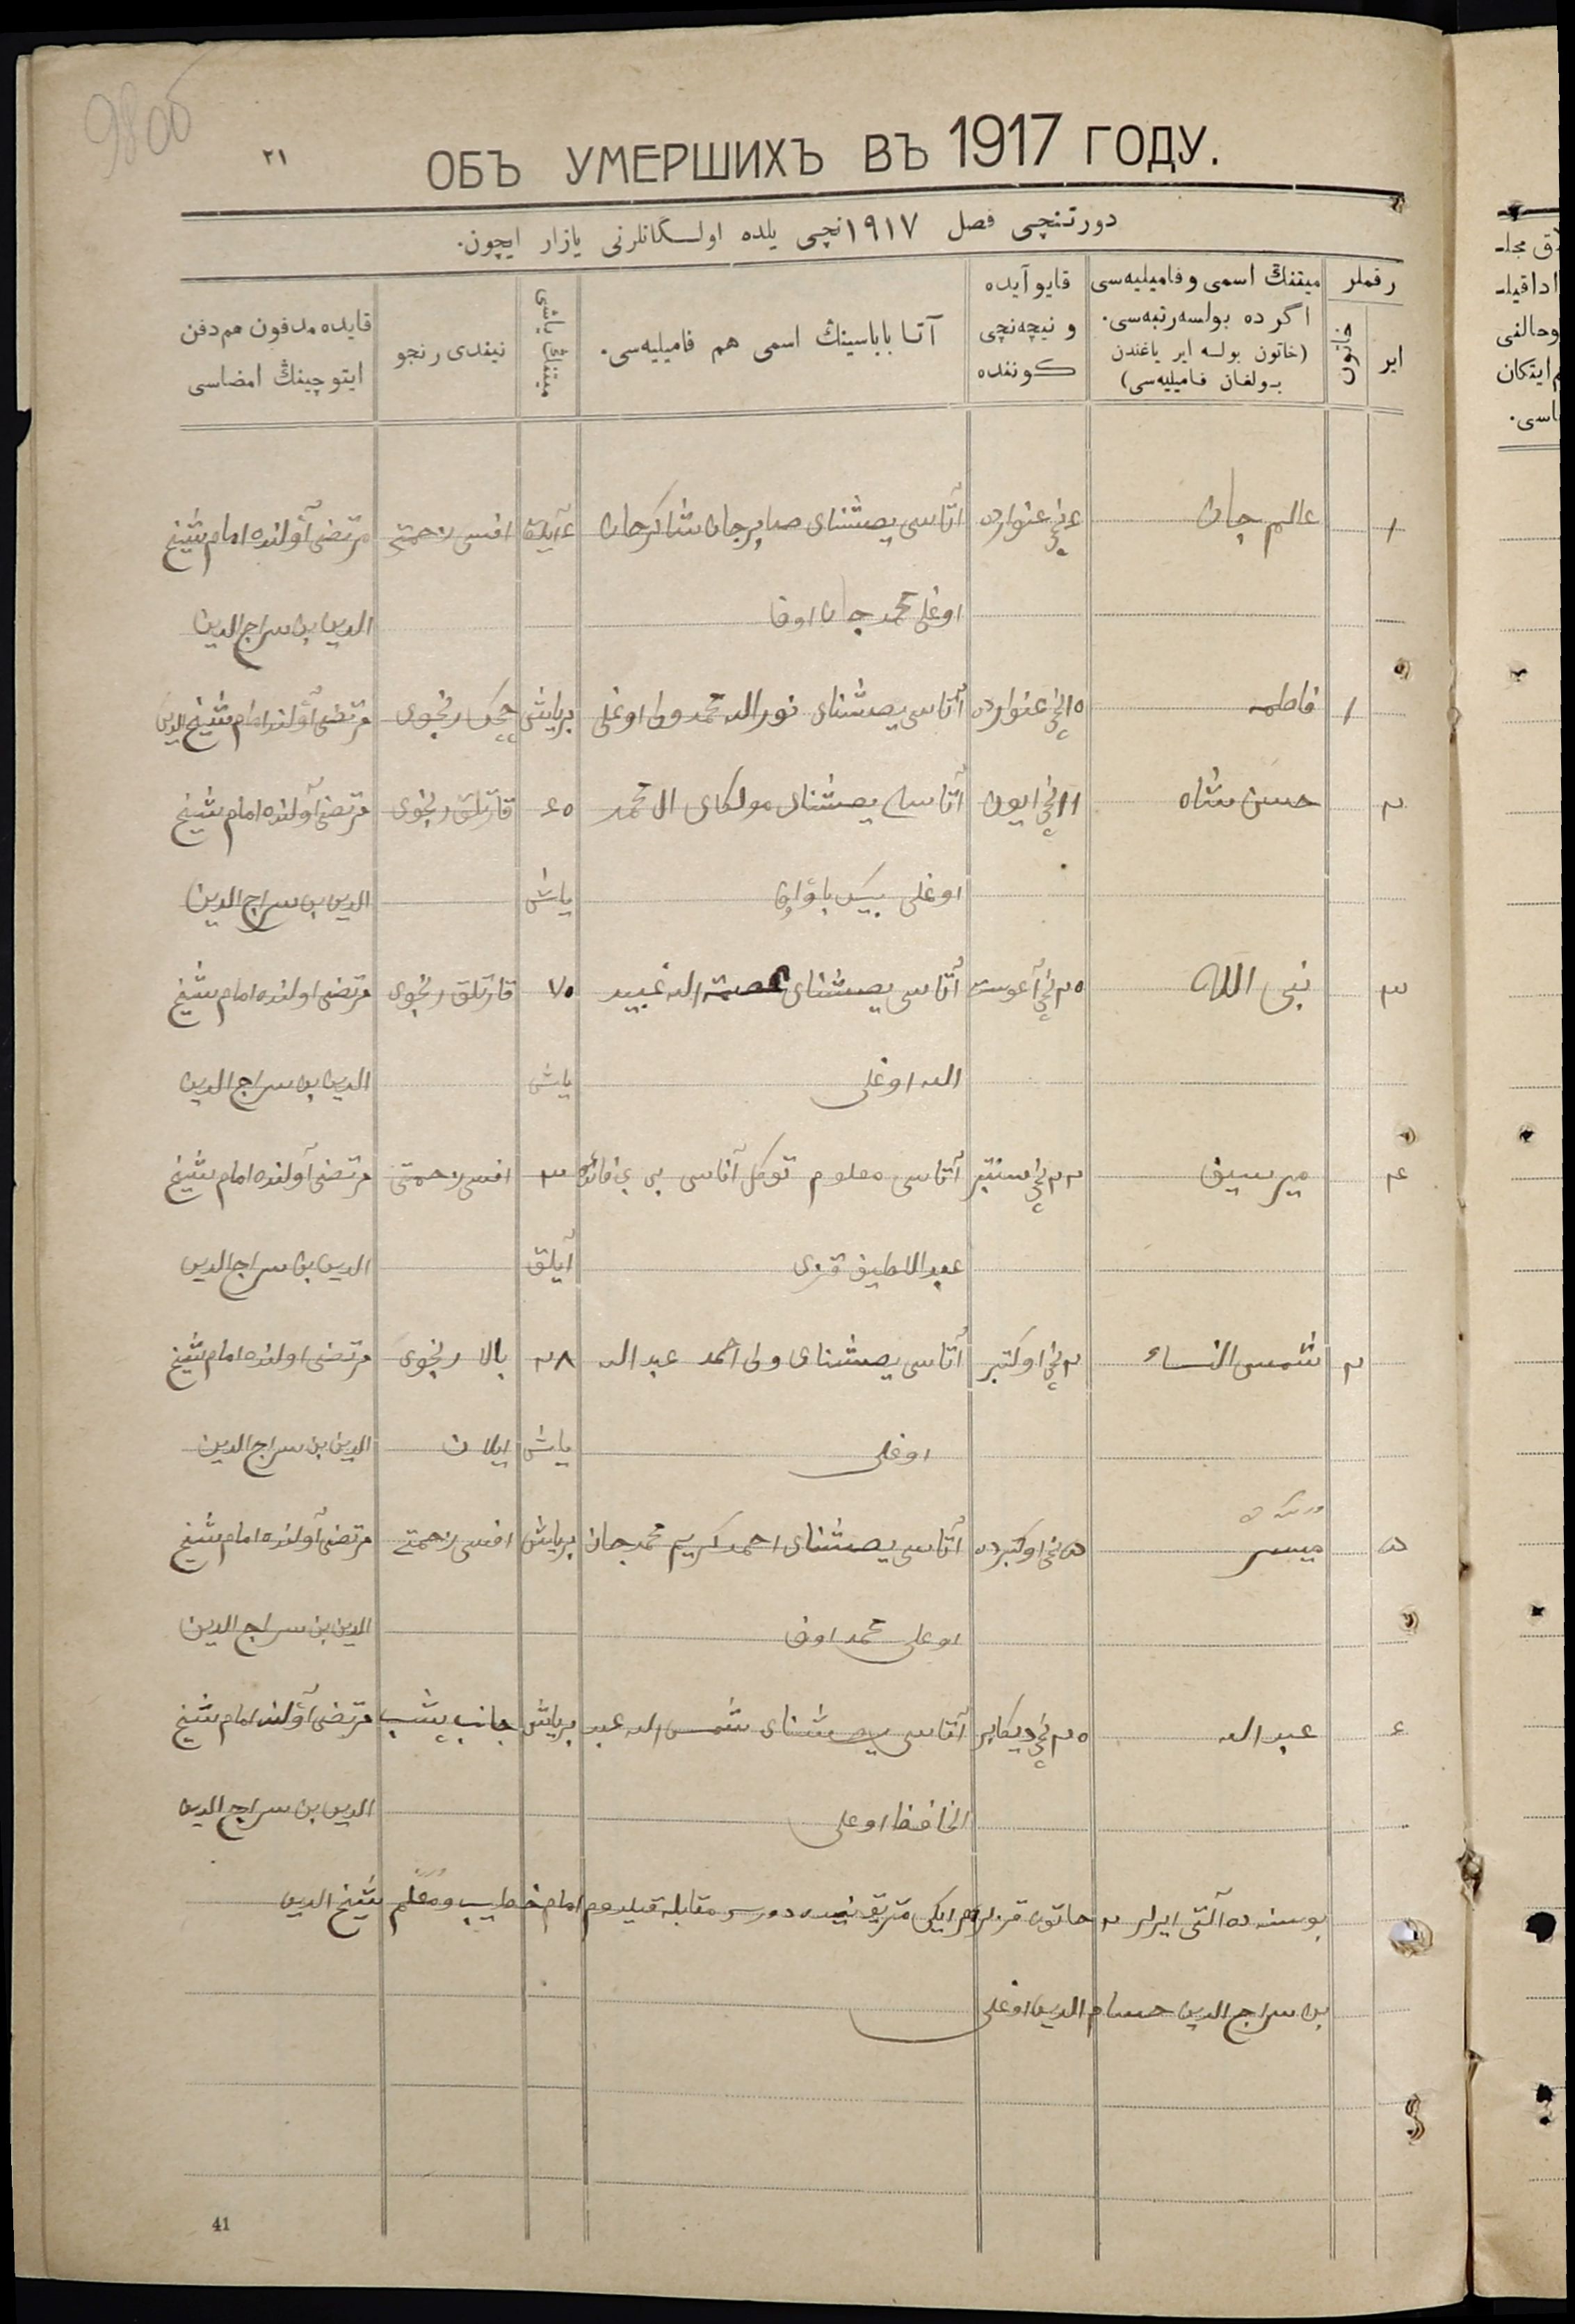 98 об
٢١
ОБЪ УМЕРШИХЪ ВЪ 1917 ГОДУ.
دورتنچی فصل ١٩١٧نچی یلده اولـگانلرنی یازار ایچون.
رقملر
ایر
خاتون
میتنڭ اسمی وفامیلیه‌سی
اگر ده بولسه رتبه‌سی.
(خاتون بولـه ایر یاغندن
بـولغان فـامیلیه‌سی)
قایو آیده
و نیچه‌نچی
کـونده
آتـا بابـاسینڭ اسمی هم فامیلیه‌سی.
میتنڭ یاشی
نیندی رنجو
قایده مدفون هم دفن
ایتوچینڭ امضاسی
١ عالم جان ٤نچی غنوارده آتاسی یصشنای صابرجان شاکرجان ٤ آیلق افسی زحمتی مرتضی آولنده امام شیخ
اوغلی محمدجان اوف الدین بن سراج الدین
١ فاطمه ١٥نچی غنوارده آتاسی یصشنای نورالله محمدولی اوغلی بریاش چچک رنجوی مرتضی آولنده امام شیخ الدین
٢ حسن شاه ١١نچی ایون آتاسی یصشنای مولکای ال محمد ٦٥ قارتلق رنجوی مرتضی آولنده امام شیخ
اوغلی بیک یاش الدین بن سراج الدین
٣ نبی الله ٢٥نچی آغوست آتاسی یصشنای عصمة الله عبید ٧٥ قارتلق رنجوی مرتضی اولنده امام شیخ
الله اوغلی یاش الدین بن سراج الدین
٤ میرسیف ٢٢نچی سنتبر آتاسی معلوم توکل آناسی بی بی فائزه ٣ افسی زحمتی مرتضی آولنده امام شیخ
عبداللطیف قزی آیلق الدین بن سراج الدین
٢ شمس النساء ٢نچی اوکتبر آتاسی یصشنای ولی احمد عبدالله ٢٨ بالا رنجوی مرتضی اولنده امام شیخ
اوغلی یاش ایلان الدین بن سراج الدین
٥ میسر ٥نچی اوکتبرده آتاسی یصشنای احمدکریم محمدجان بریاش افسی زحمتی مرتضی آولنده امام شیخ
اوغلی محمد اوف الدین بن سراج الدین
٦ عبدالله ٢٥نچی دیکابر آتاسی یصشنای شمس الله عبد بریاش مرتضی آولنده امام شیخ
الحافظ اوغلی الدین بن سراج الدین
بوسنه‌ده آلتی ایرلر ٢ خاتون قزلر هم ایکی دورست مقابله قیلدوم امام خطیب و معلم شیخ الدین
بن سراج الدین حسام الدین اوغلی
41